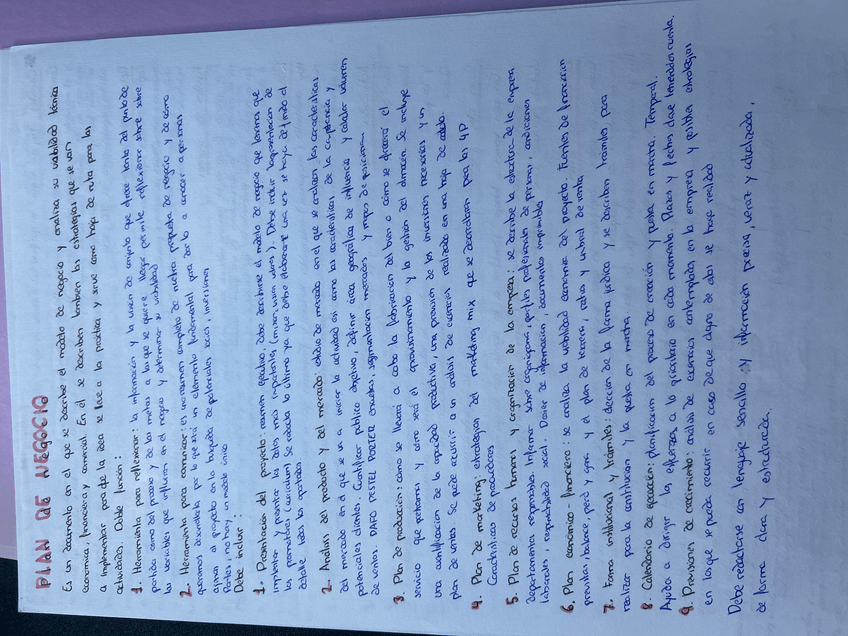 PLAN DE NEGOCIO
Es un documento en el que se describe el modelo de negocio y analiza su viabilidad técnica
económica, financiera y comercial. En él se describen también las estrategias que se van
a implementar para que la idea se lleve a la práctica y sirve como hoja de ruta para las
actividades. Doble función:
1. Herramienta para reflexionar: la información y la visión de conjunto que ofrece tanto del punto de
partida como del proceso y de las metas a las que se quiere llegar permite reflexionar sobre
las variables que influyen en el negocio y determinar su viabilidad
2. Herramienta para comunicar: es un resumen completo de nuestra propuesta de negocio y de cómo
queremos desarrollarla, por lo que será un elemento fundamental para darlo a conocer a personas
ajenas al proyecto en la búsqueda de potenciales socios, inversiones
Partes: no hay un modelo único
Debe incluir:
1. Presentación del proyecto: resumen ejecutivo, debe describirse el modelo de negocio que tenemos que
implantar y presentar los datos más importantes (misión, visión, valores). Debe incluir la presentación de
los promotores (currículum). Se redacta lo último ya que debe elaborarse una vez se haya definido al
detalle todos los apartados
2. Análisis del producto y del mercado: estudio de mercado en el que se analizan las características
del mercado en el que se va a iniciar la actividad así como las características de la competencia y
potenciales clientes. Cuantificar público objetivo, definir área geográfica de influencia y calcular volumen
de ventas. DAFO PESTEL PORTER encuestas, segmentación mercados y mapas de posicionam.
3. Plan de producción: cómo se llevará a cabo la fabricación del bien o cómo se ofrecerá el
servicio que prestamos y cómo será el aprovisionamiento y la gestión del almacén. Se incluye
una cuantificación de la capacidad productiva, una previsión de las inversiones necesarias y un
plan de ventas. Se puede recurrir a un análisis de escenarios realizado en una hoja de cálculo.
4. Plan de marketing: estrategias del marketing mix que se desarrollarán para las 4P
Características de proveedores
5. Plan de recursos humanos y organización de la empresa: se describe la estructura de la empresa
departamentos responsables. Informe sobre organigrama, perfiles profesionales de personal, condiciones
laborales, responsabilidad social. Dosier de información, documentos imprimibles
6. Plan económico-financiero: se analiza la viabilidad económica del proyecto. Fuentes de financiación
previstas, balance, perd y gan y el plan de tesorería, ratios y umbral de renta.
7. Forma institucional y trámites: elección de la forma jurídica y se describen trámites para
realizar para la constitución y la puesta en marcha
8. Calendario de ejecución: planificación del proceso de creación y puesta en marcha. Temporal.
Ayuda a dirigir los esfuerzos a lo prioritario en cada momento. Plazos y fechas clave teniendolos cuenta.
9. Previsiones de crecimiento: análisis de escenarios contemplados en la empresa y posibles estrategias
en las que se puede recurrir en caso de que alguno de ellos se haga realidad
Debe redactarse con lenguaje sencillo y información precisa, veraz y actualizada,
de forma clara y estructurada.